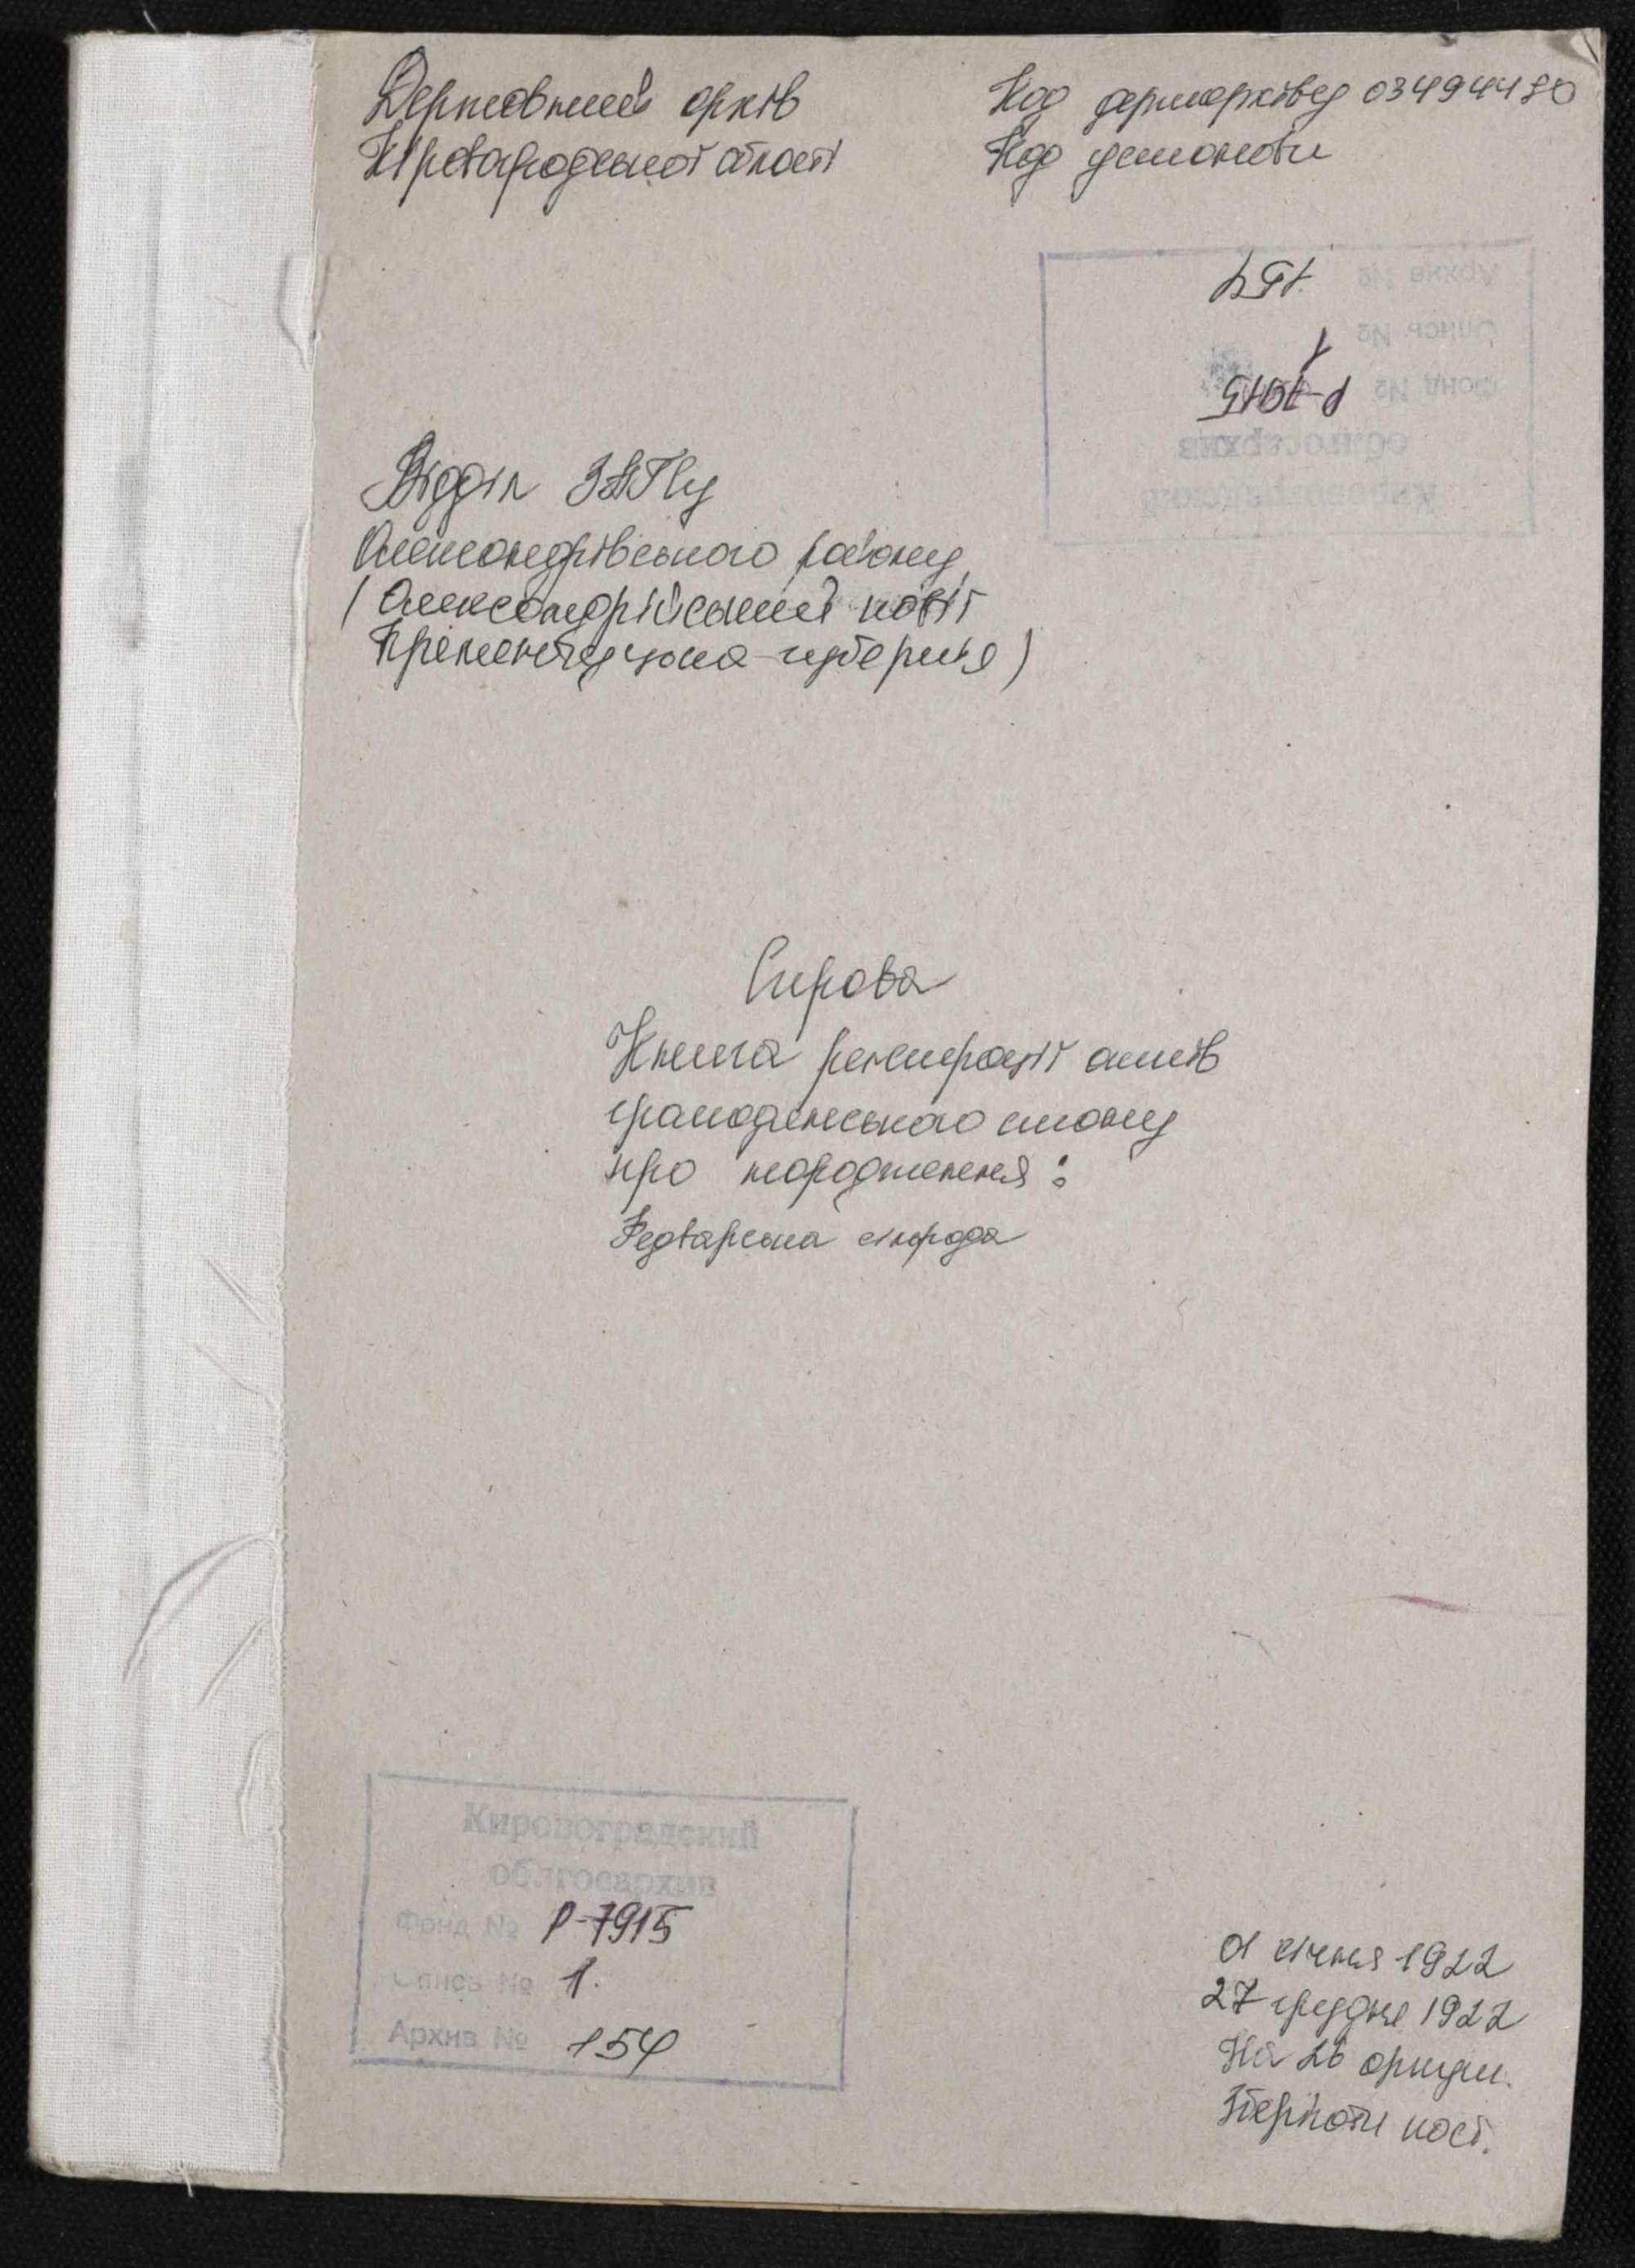 Державний архів
Кіровоградської області
Код держархіву 03494480
Код установи
154
1
Р-7915
Відділ ЗАГСу
Олександрівського району
(Олександрійський повіт
Кременчуцька губернія)
Справа
Книга реєстрації актів
громадянського стану
про народження:
Федварська сільрада
Кировоградский
облгосархив
Фонд № Р-7915
Опись № 1.
Архив № 154
01 січня 1922
27 грудня 1922
На 26 аркуш.
Зберігати пост.